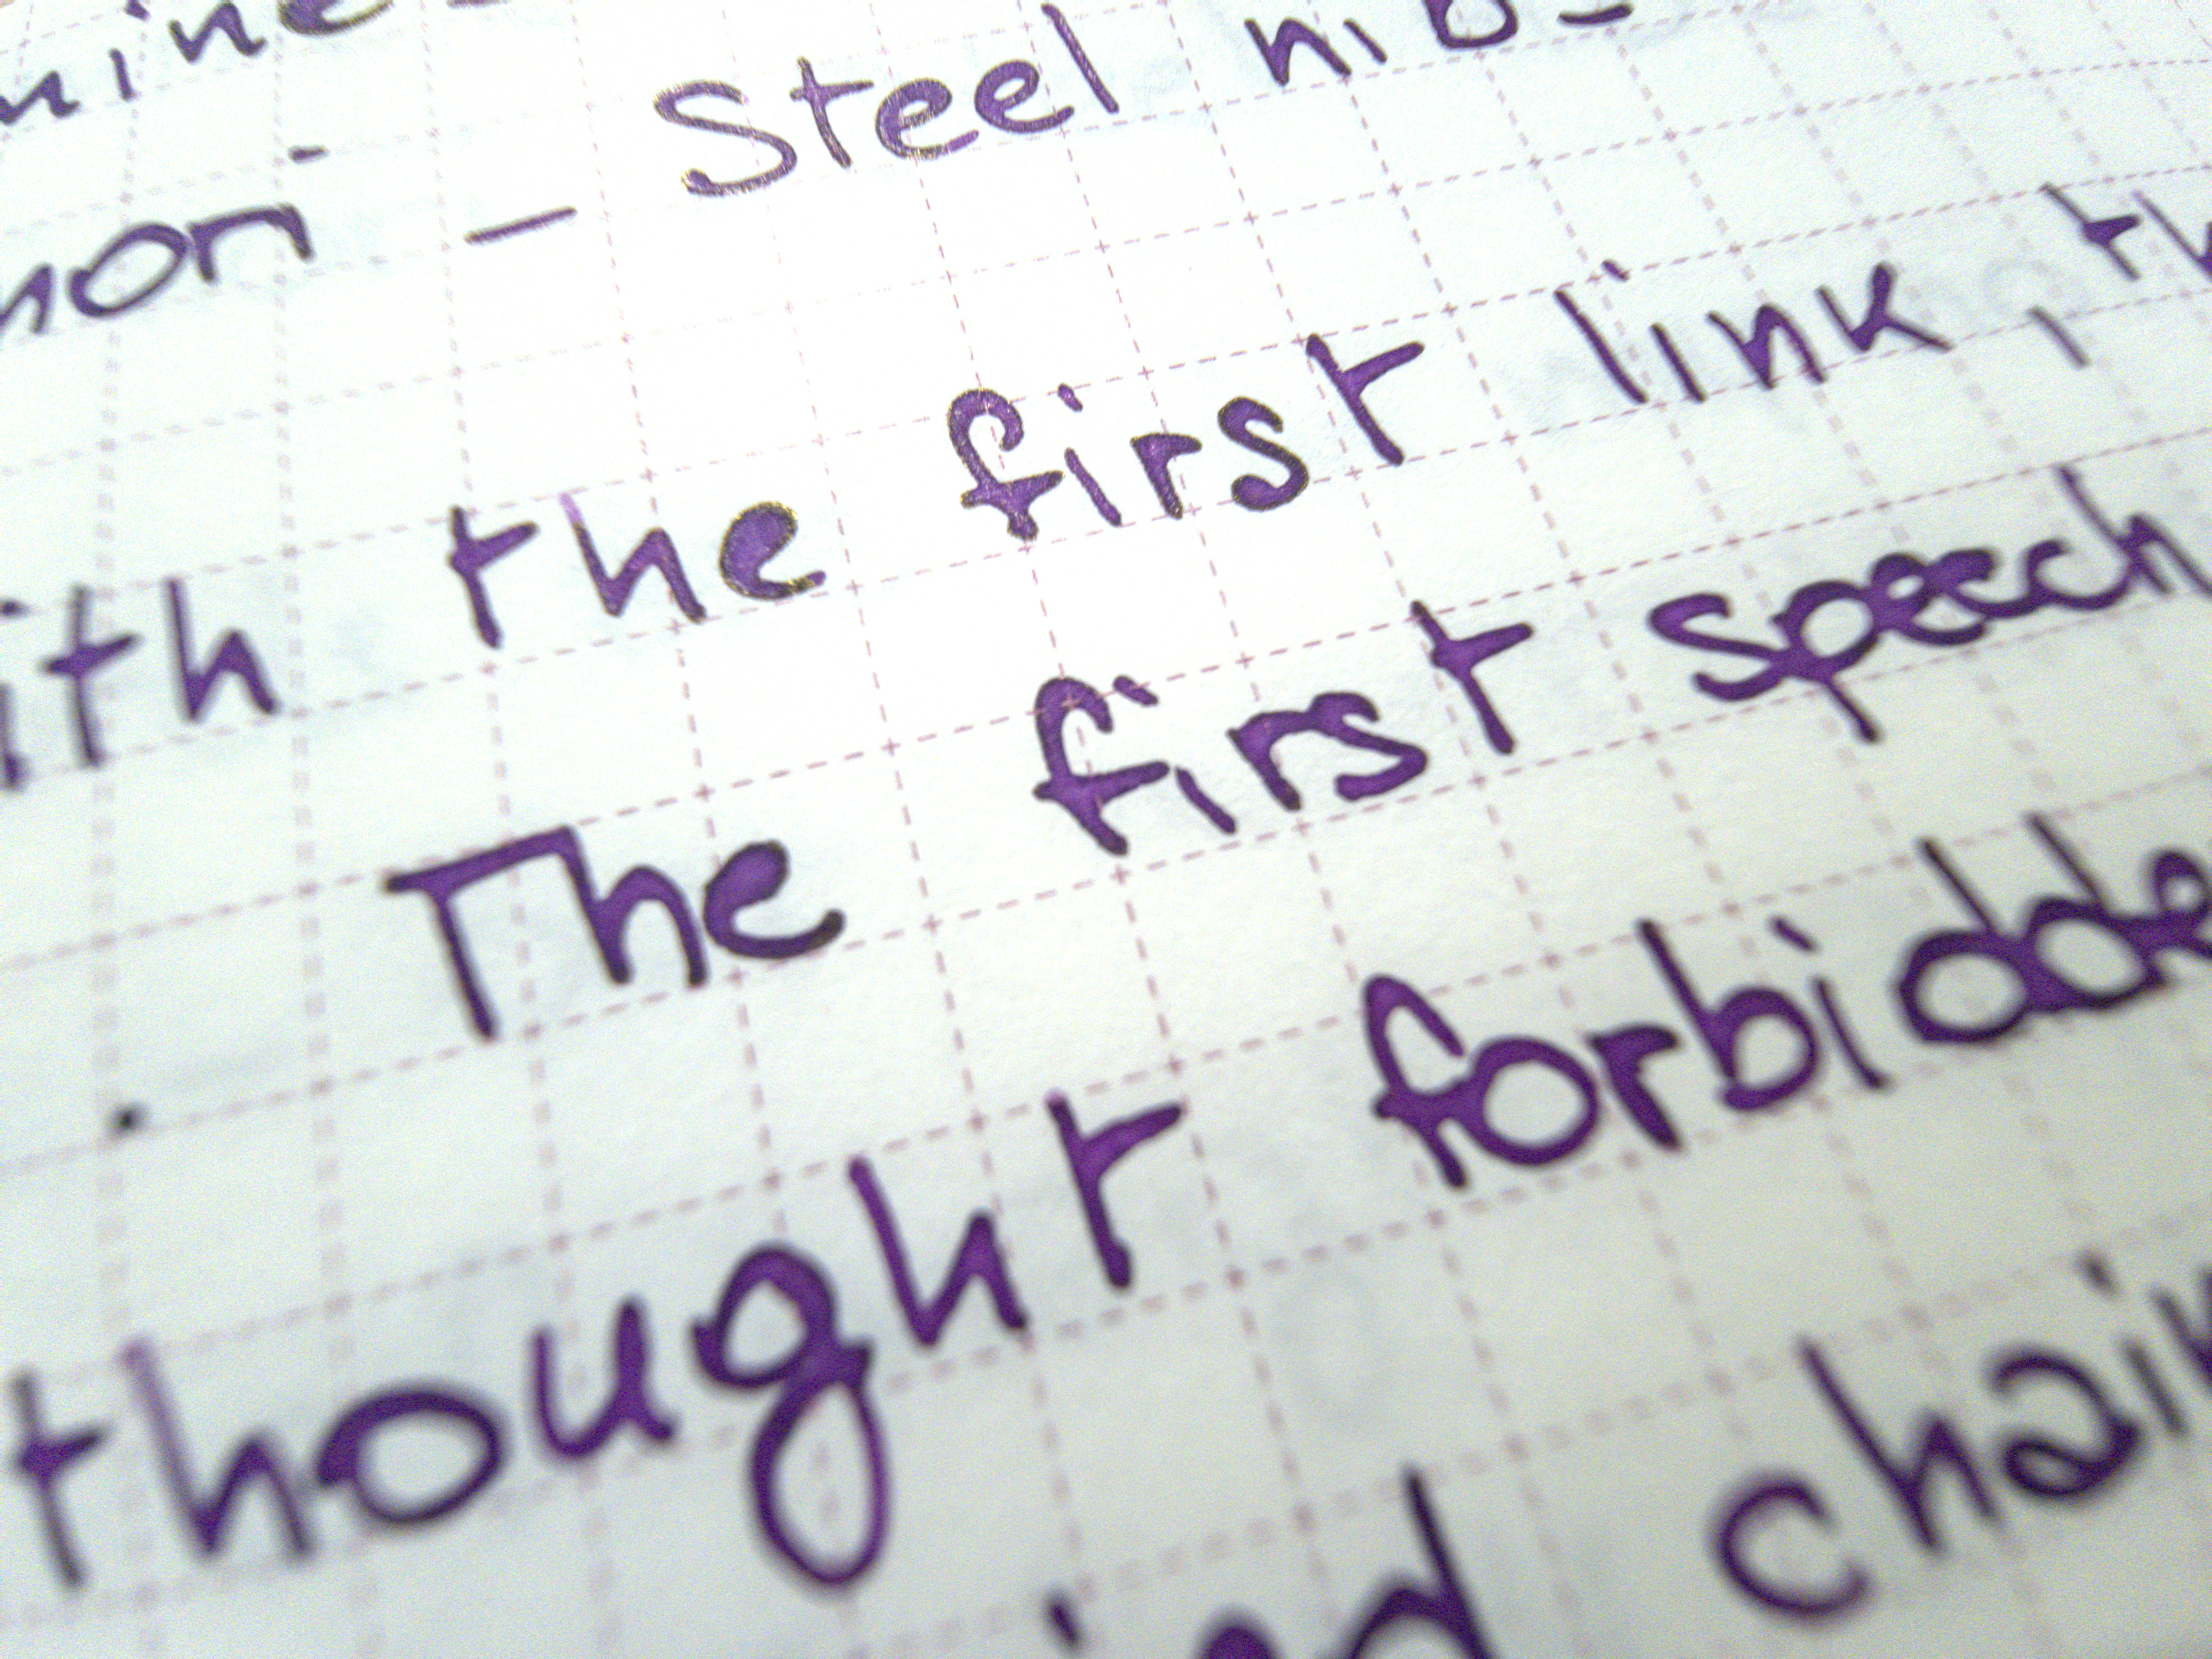 - Steel nib -
ith the first link, th
. The first speech
thought forbidde
chain